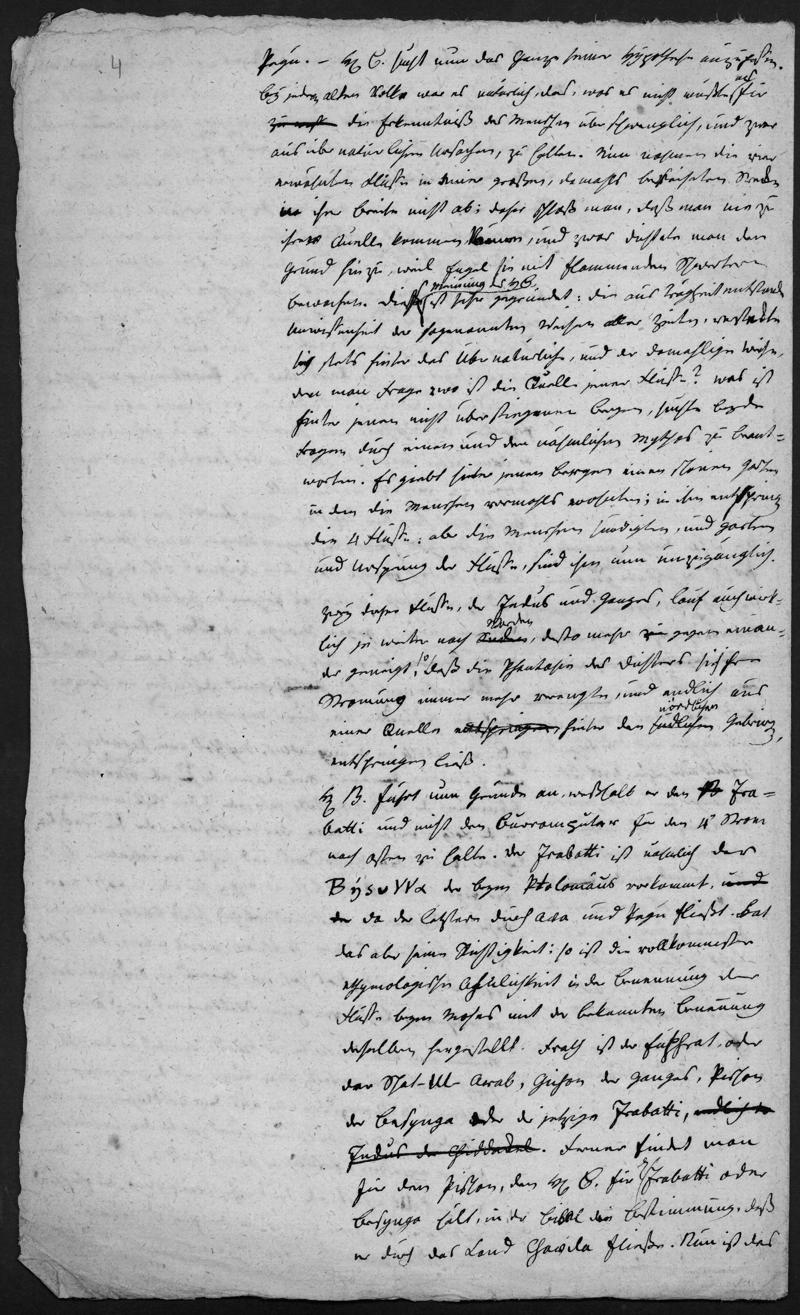 4
Pegu. – H. B. sucht nun das Ganze seiner Hypothese
bey jedem alten Volke war es natürlich, das, was es nicht wußte, als für
die Erkenntniß des Menschen überschwenglich, und zwar
aus übernatürlichen Ursachen, zu halten. Nun nahmen die vier
erwähnten Flüsse in großen, damahls
ihre Breite nicht ab; daher schloß man, daß man nie zu
ihrer Quelle kommen könne, und zwar dichtete man den
Grund hinzu, weil Engel sie mit flammenden Schwertern
bewachen. Diese Meinung des H. B. ist sehr gegründet: die aus Trägheit entstandene
Unwissenheit der sogenannten Weisen aller Zeiten, versteckte
sich stets hinter das Übernatürliche, und der damahlige Weise,
den man fragte wo ist die Quelle jener Flüsse? was ist
hinter jenen nicht überstiegenen Bergen, suchte beyde
Fragen durch einen und den nähmlichen Mythos zu beant-
worten. Es giebt hinter jenen Bergen einen schönen Garten
in dem die Menschen vormahls wohnten; in ihm entspringen
die 4 Flüsse; aber die Menschen sündigten, und Garten
und Ursprung der Flüsse, sind ihnen nun unzugänglich.
Zwey dieser Flüsse, der Indus und Ganges, lauf auch wirk-
lich je weiter nach Norden, desto mehr gegen einan-
der geneigt, so daß die Phantasie des Dichters sich ihre
Strömung immer mehr verengte, und endlich aus
einer Quelle entspringen hinter den nördlichen südlichen Gebirgen,
entspringen ließ.
H. B. führt nun Gründe an, weßhalb er den Ira-
batti und nicht den Burremputer für den 4ten Strom
nach Osten zu halte. Der Irabatti ist nähmlich der
der beym Ptolomäus vorkommt, und
der da der letztere durch Ava und Pegu fließt. Hat
das aber seine Richtigkeit; so ist die vollkommenste
ethymologische Ähnlichkeit in der Benennung der
Flüsse beym Moses mit der bekannten Benennung
derselben hergestellt. Frath ist der Euphrat, oder
der Shat-Ul-Arab, Gihon der Ganges, Pischon
der Besynga oder der jetzige Irabatti, endlich der
Indus der Chiddekel. Ferner findet man
für den Pischon, den H. B. für den Irabatti oder
Besynga hält, in der Bibel die Bestimmung, daß
er durch das Land Chavila fließe. Nun ist das